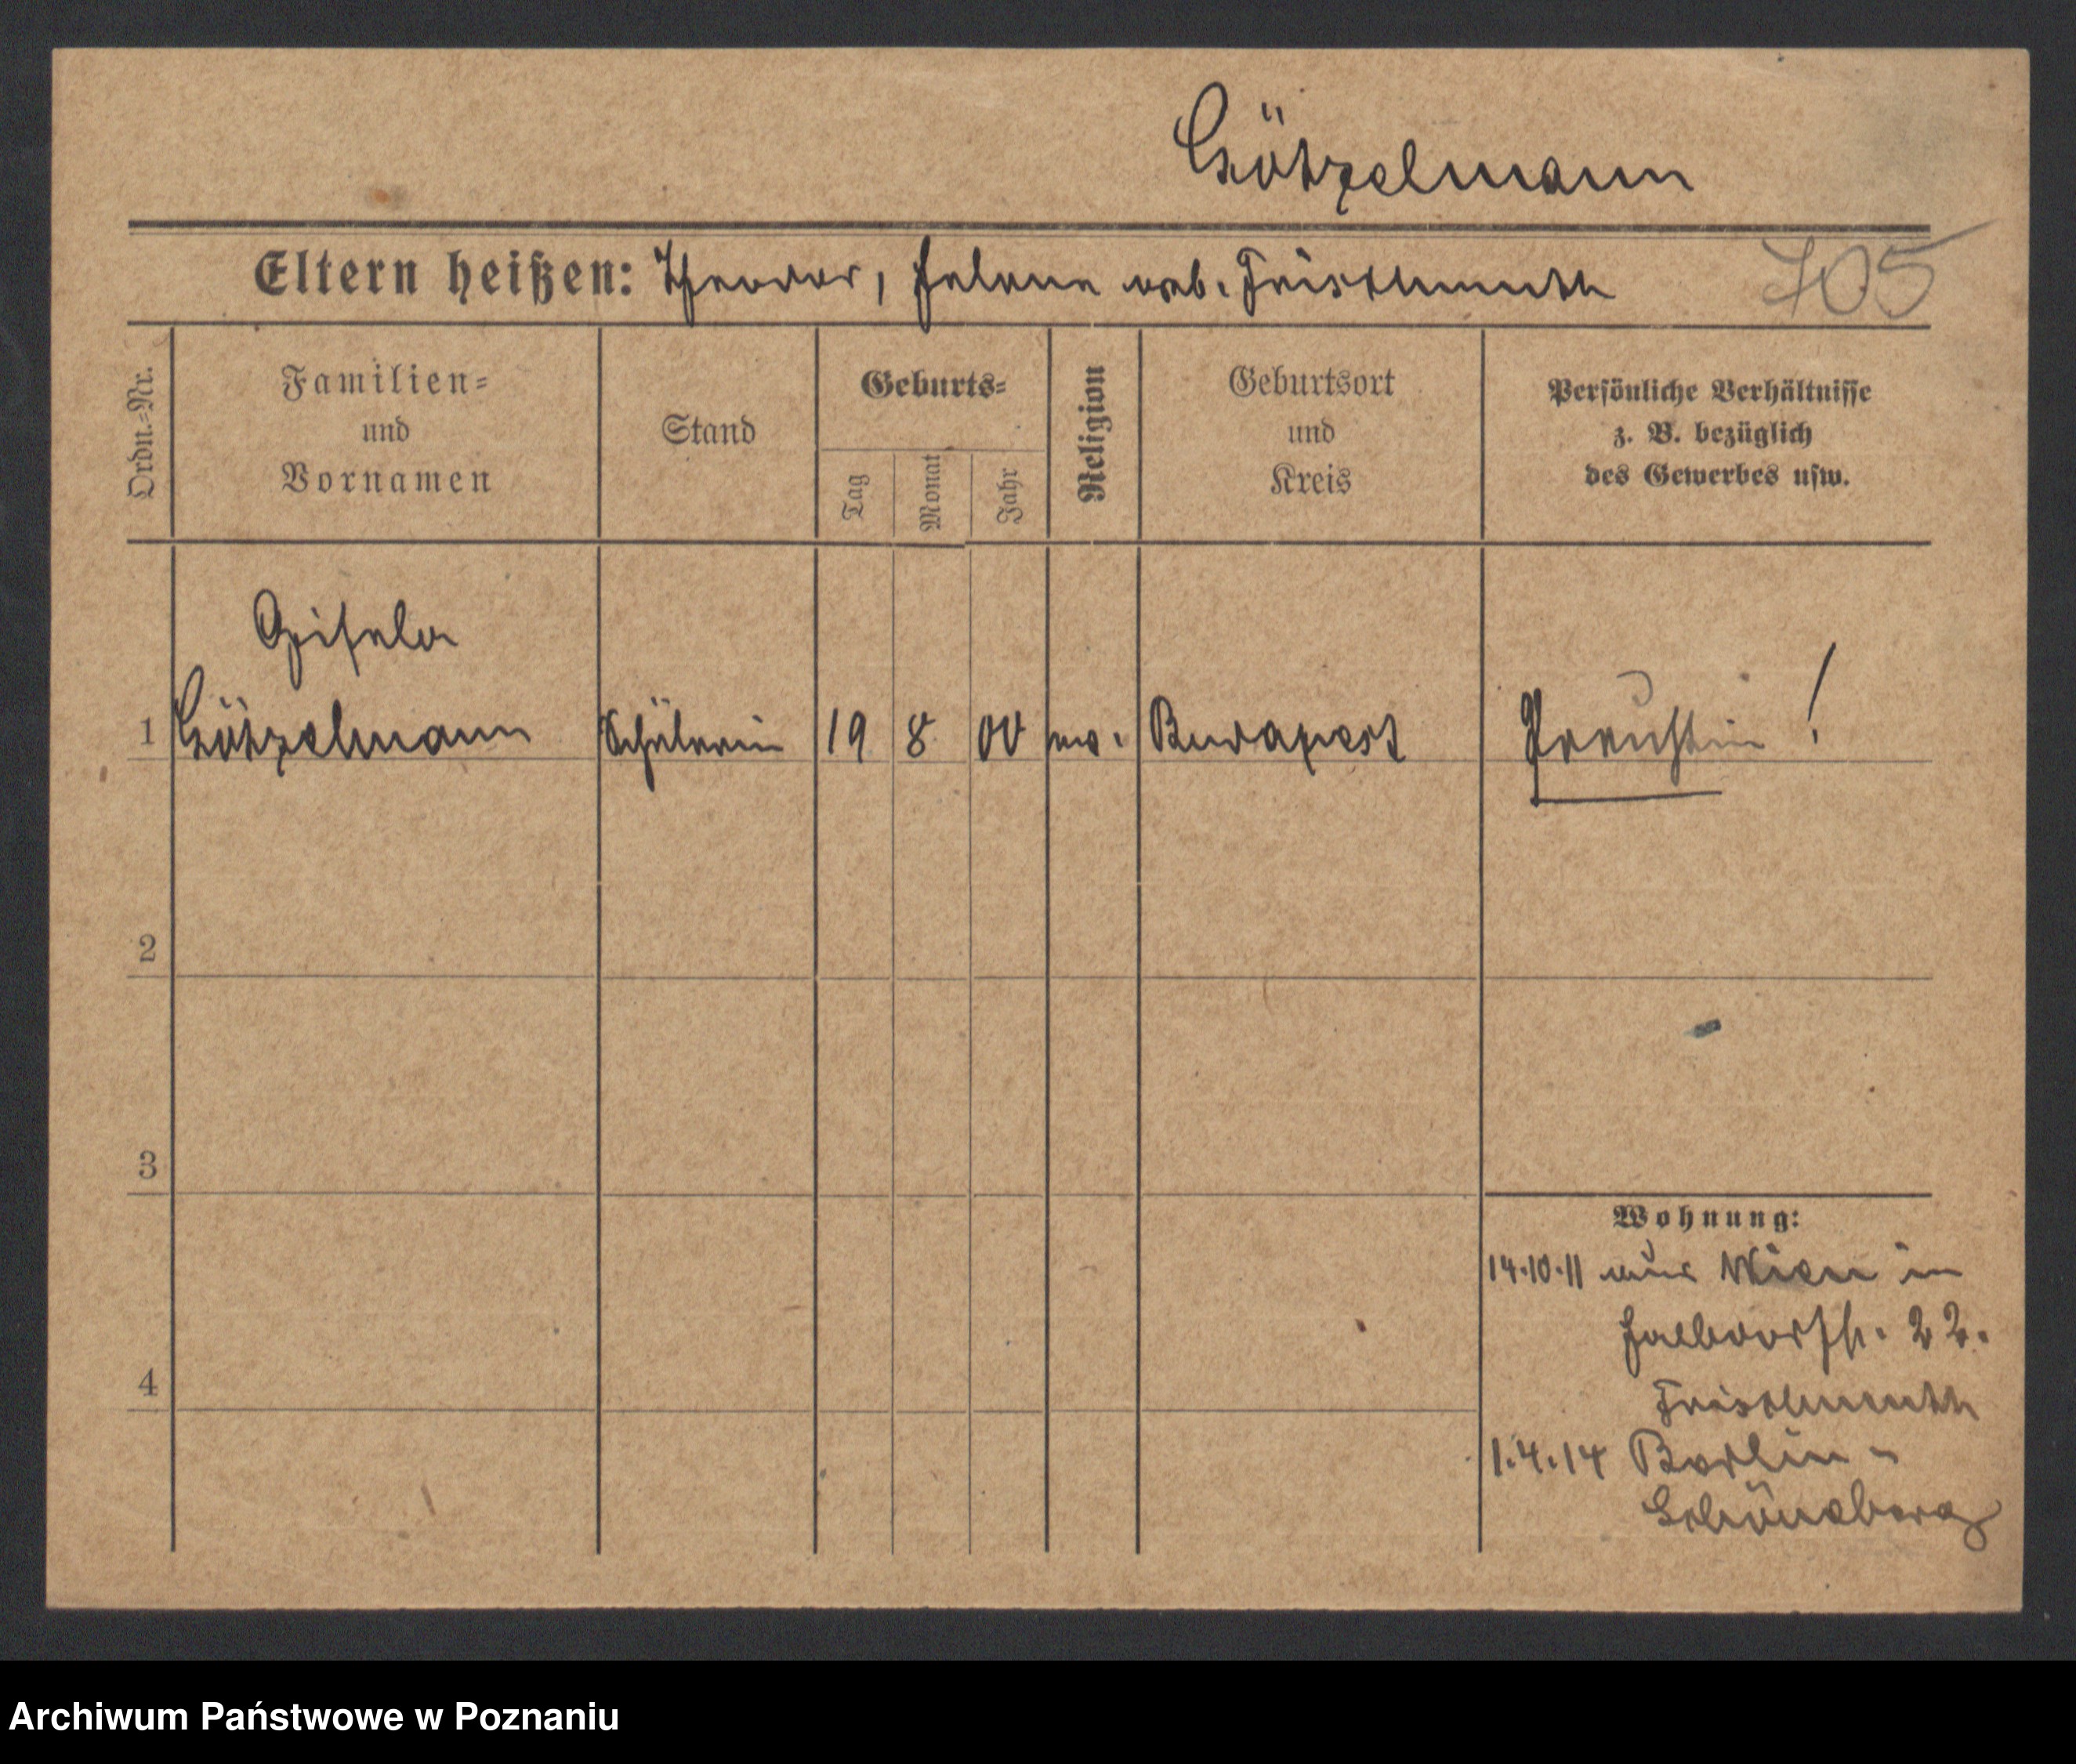 Götzelmann
Eltern heißen: Theodor, Helene geb. Frischmuth 705
Ordn.-Nr.
Familien-
und
Vornamen
Stand
Geburts-
Tag
Monat
Jahr
Religion
Geburtsort
und
Kreis
Persönliche Verhältnisse
z. B. bezüglich
des Gewerbes usw.
Gisela
1 Götzelmann Schülerin 19 8 00 ev. Budapest Preußin!
2
3
4
Wohnung:
14.10.11 aus Wien in
22.
Frischmuth
1.4.14 Berlin-
Schöneberg
Archiwum Państwowe w Poznaniu